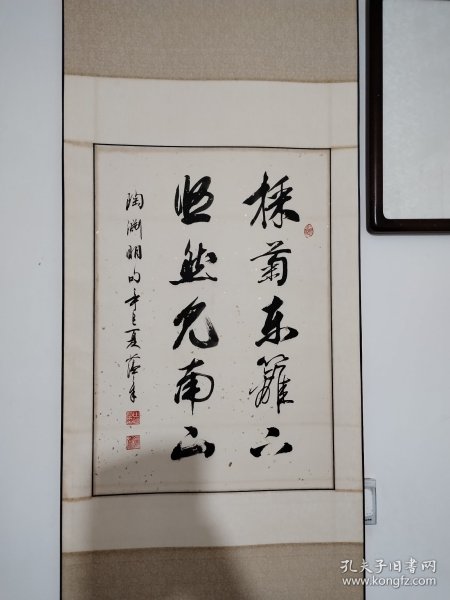 採菊东篱下
悠然见南山
陶渊明句辛巳夏
孔夫子旧书网
www.kongfz.com